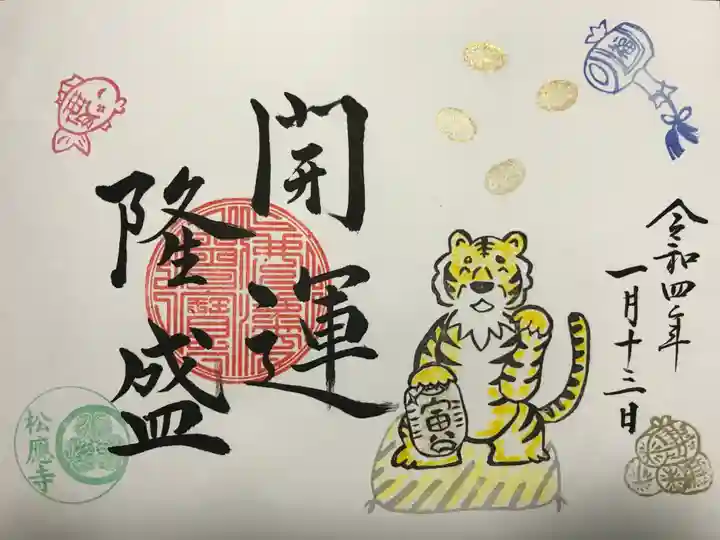 開運
隆盛
令和四年
一月十三日
福
松應寺